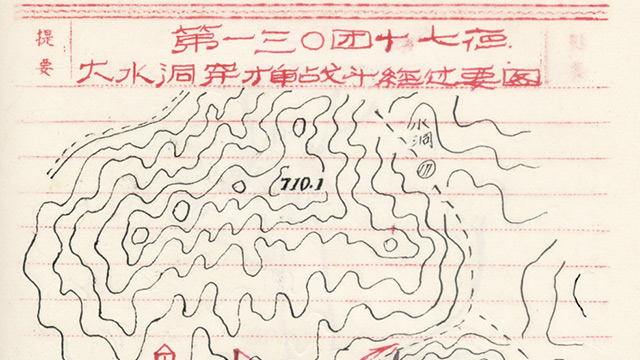 提要
第一三〇团十七连
大水洞穿插战斗經过要図
水洞
17
710.1